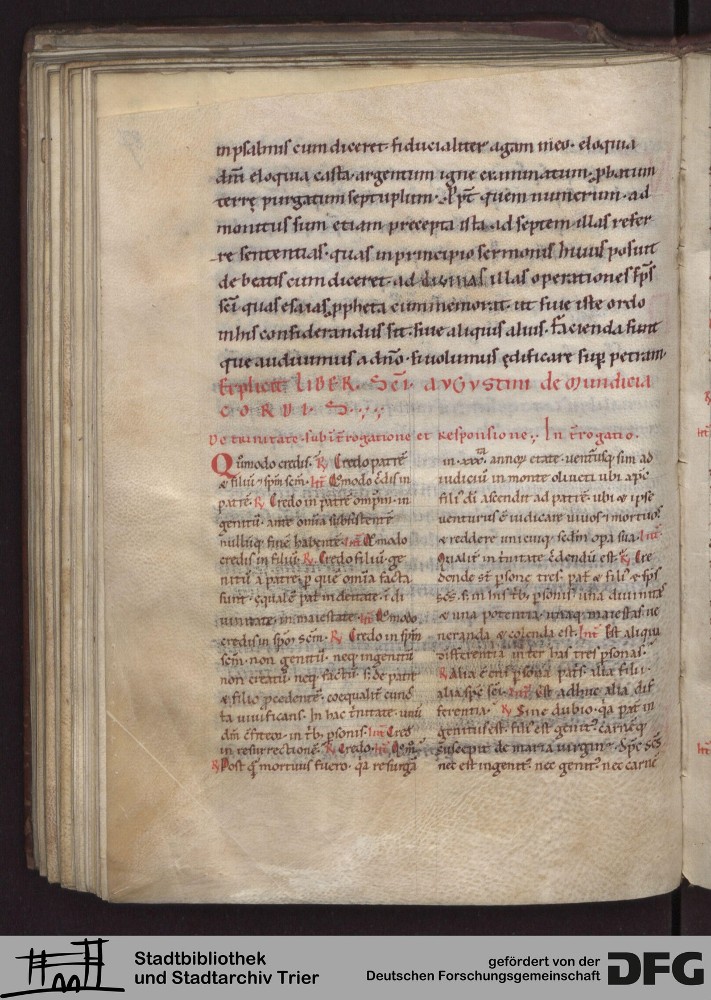 in psalmis cum diceret· fiducialiter agam in eo· eloquia
dñi eloquia casta· argentum igne examinatum· ꝓbatum
terrę purgatum septuplum· ꝓpt quem numerum· ad
monitus sum etiam precepta ista ad septem illas refer
re sententias· quas in principio sermonis huius posuit
de beatis cum diceret· ad divinas illas operationes sp̄s
sc̄i quas esaias ꝓpheta cummemorat· ut siue iste ordo
in his considerandus sit· siue aliquis alius· facienda sunt
que audiuimus a dn̄o· si uolumus edificare sup̄ petram·
Explicit LIBER· Sc̄i aVGVstini de Mundicia
CORDIS
De trinitate· sub īt̄rogatione et Responsione· Int̄rogatio·
Qͦmodo credis· ℟ Credo patrē
& filiū & sp̄m sc̄m· Int̄ Qͦmodo c̄dis in
patrē· ℟ Credo in patrē om̄pm̄· in
genitū· ante om̄ia subsistentē
nullūq; finē habentē· Int̄ Qͦmodo
credis in filiū· ℟ Credo filiū· ge
nitū a patre· ꝑ que om̄ia facta
sunt· equalē pat̄ in deitate· ī di
uinitate· in maiestate· Int̄ Qͦmodo
credis in sp̄m sc̄m· ℟ Credo in sp̄m
sc̄m· non genitū· neq; ingenitū
non creatū· neq; factū· s; de patr̄
& filio ꝓcedentē· coequalit̄ cunc
ta uiuificans· In hac t̄nitate· unū
dm̄ c̄fiteor· in t̄b; ꝑsonis· Int̄ Cred
in resurrectionē· ℟ Credo· Int̄ Qͦm̄·
℟ Post q̄ mortuus fuero· q̄a resurgā
in·xxx· annoꝝ etate· uenturusq; sim ad
iudiciū in monte oliueti ubi xp̄c
filˢ di ascendit ad patrē· ubi & ipse
uenturus ē iudicare uiuos & mortuos
& reddere unicuiq; sedm̄ op̄a sua· Int̄
Qualit̄ in t̄nitate c̄dendū est· ℟ Cre
dende st̄ ꝑsone tres· pat̄ & filˢ & sp̄s
sc̄s· s; in his t̄b; ꝑsonis· una diuinitas
& una potentia· unaq; maiestas ue
neranda & colenda est· Int̄ Est aliqua
differentia inter has tres ꝑsonas·
℟ Alia ē eni ꝑsona patˢ· alia filii·
alia sp̄c sc̄i· Int̄ Est adhuc alia dif
ferentia· ℟ Sine dubio· q̄a pat̄ in
genitus est· filˢ est genitˢ carnēq;
suscepit de maria uirgine· Sp̄c sc̄s
nec est ingenitˢ nec genitˢ nec carnē
Stadtbibliothek
und Stadtarchiv Trier
gefördert von der
Deutschen Forschungsgemeinschaft
DFG